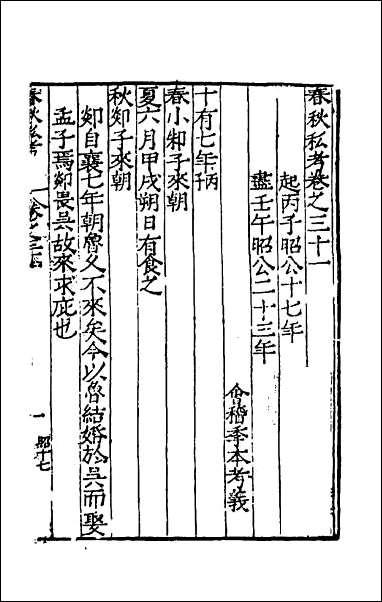 春秋私考卷之三十一
起丙子昭公十七年
盡壬午昭公二十三年
會稽季本考義
十有七年
春小邾子來朝
夏六月甲戌朔日有食之
秋郯子來朝
郯自襄七年朝魯久不來矣今以魯結婚於吳而娶
孟子焉郯畏吳故來求庇也
春秋私考
一
昭十七